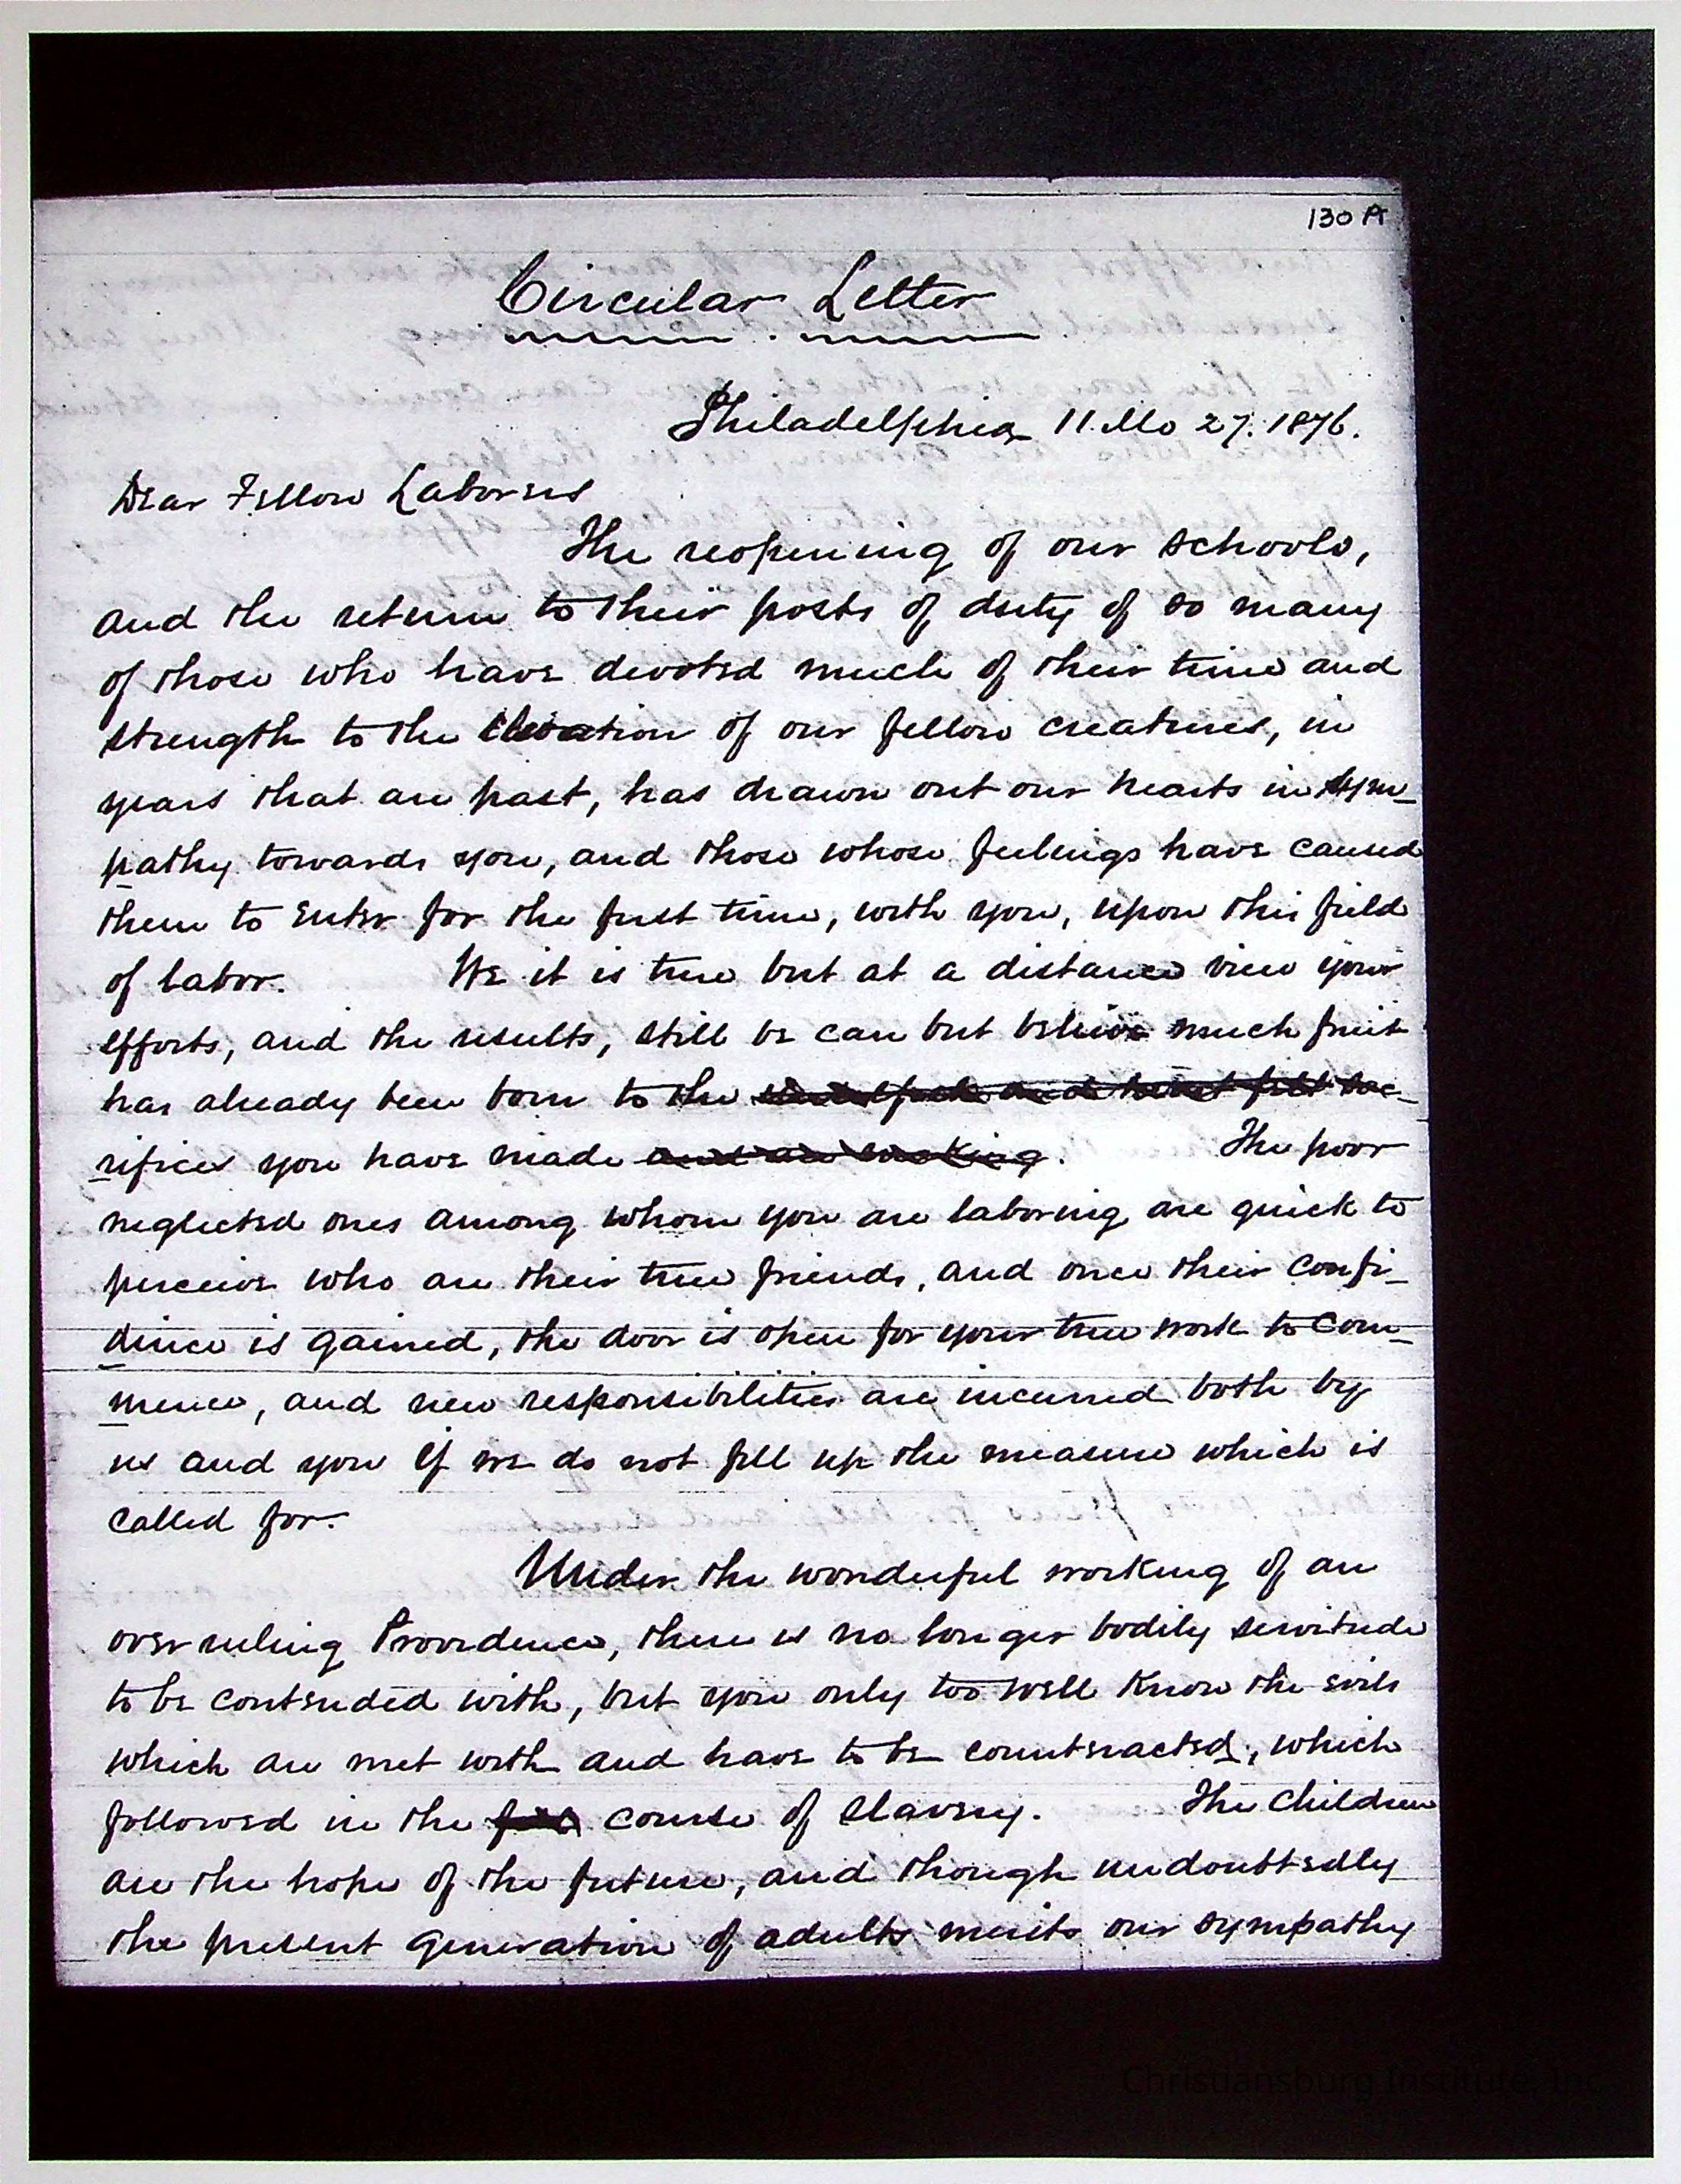 130 A
Circular Letter
Philadelphia 11. Mo 27. 1876.
Dear Fellow Laborers
The reopening of our schools,
and the return to their posts of duty of so many
of those who have devoted much of their time and
strength to the elevation of our fellow creatures, in
years that are past, has drawn out our hearts in sym-
pathy towards you, and those whose feelings have caused
them to enter for the first time, with you, upon this field
of labor. We it is true but at a distance view your
efforts, and the results, still be can but believe much fruit
has already been born to the and heart felt sac-
rifices you have made and are making. The poor
neglected ones among whom you are laboring are quick to
perceive who are their true friends, and once their confi-
dence is gained, the door is open for your true work to com-
mence, and new responsibilities are incurred both by
us and you if we do not fill up the measure which is
called for.
Under the wonderful working of an
over ruling Providence, there is no longer bodily servitude
to be contended with, but you only too well know the evils
which are met with and have to be counteracted, which
followed in the course of slavery. The children
are the hope of the future, and though undoubtedly
the present generation of adults merits our sympathy
Christiansburg Institute, Inc